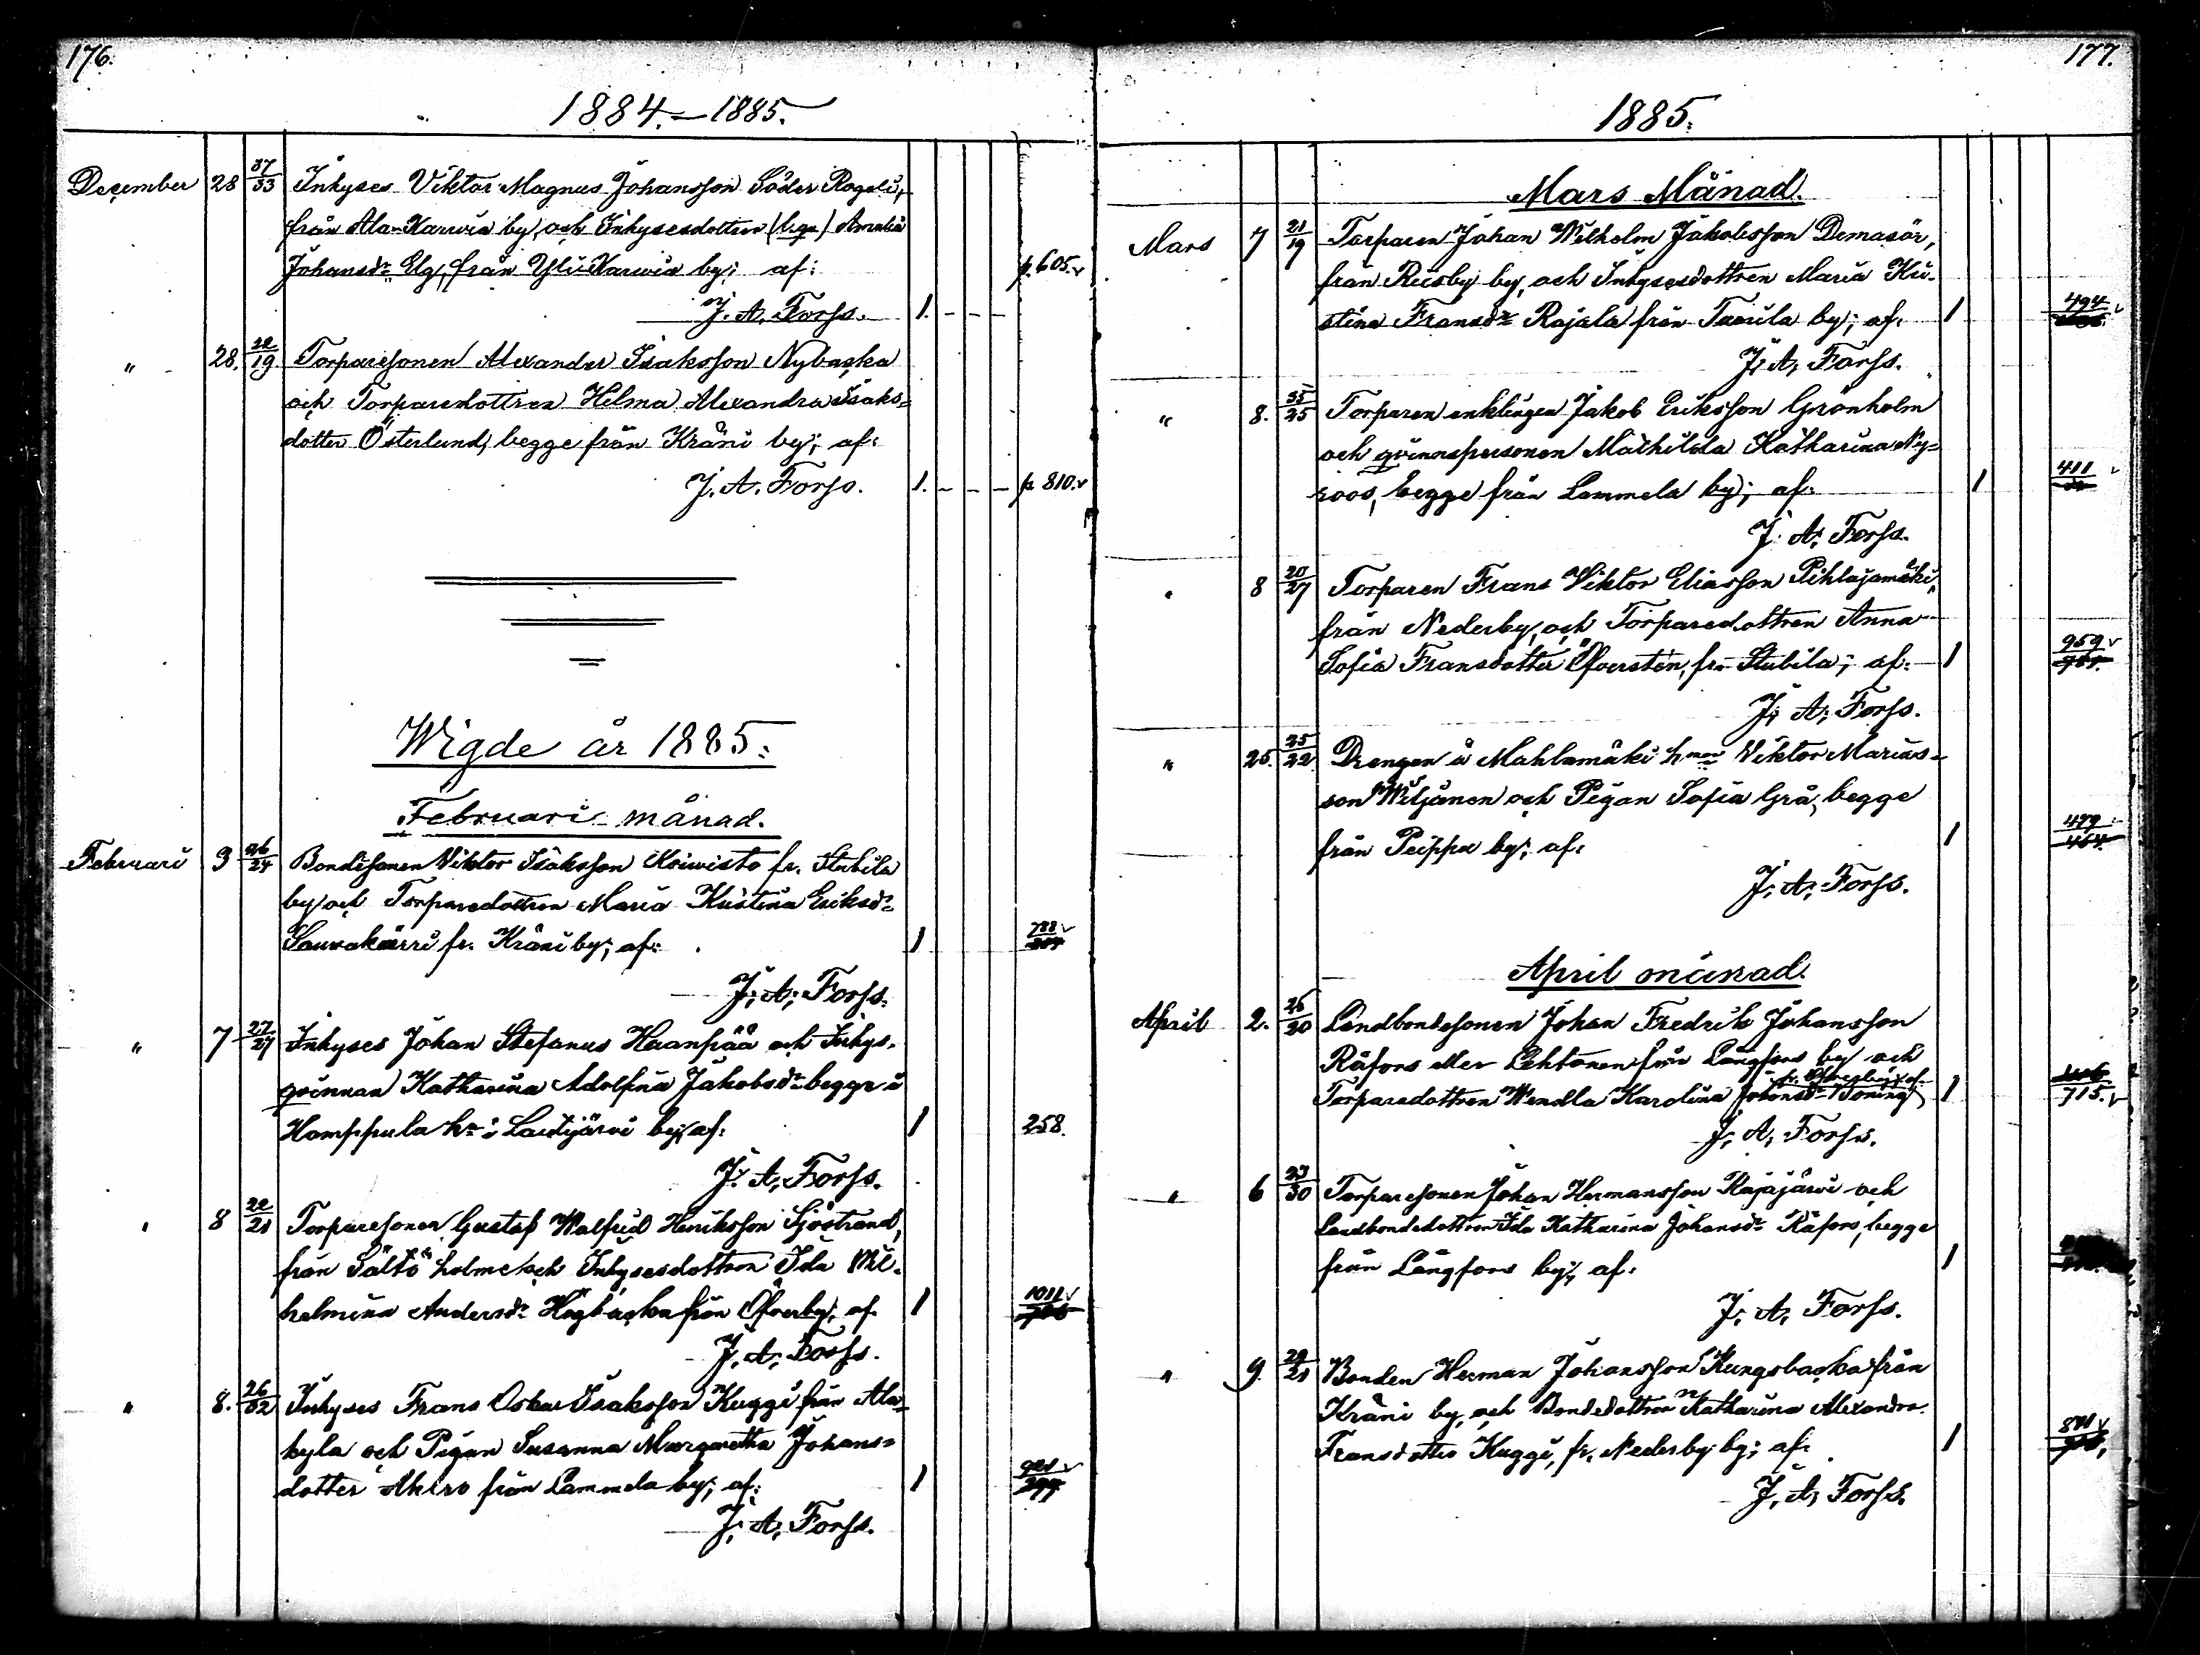 176.
1884.–1885.
December 28 37/33 Inhyses Viktor Magnus Johansson Söder Rogeli,
från Ala-Karvia by, och Inhysesdottren (l.qv.) Amalia
Johansdr Elg, från Yli-Karvia by; af: p. 605.
J. A. Forss. 1.
" 28. 22/19 Torparesonen Alexander Isaksson Nybacka
och Torparedottren Helma Alexandra Isaks-
dotter Österlund, begge från Kråni by; af:
J. A. Forss. 1. p 810.
Wigde år 1885.
Februari månad.
Februari 3 26/24 Bondesonen Viktor Isaksson Koivisto fr. Stubila
by och Torparedottren Maria Kristina Eriksdr
Sauvakärri fr. Kråni by; af: 1 788
J. A. Forss.
" 7 27/27 Inhyses Johan Stefanus Haanpää och Inhys.
qvinnan Katharina Adolfina Jakobsdr begge å
Hamppula hn i Lautijärvi by; af: 1 258.
J. A. Forss.
" 8 22/21 Torparesonen Gustaf Walfrid Henriksson Sjöstrand,
från Sältö holme och Inhysesdottren Ida Wil-
helmina Andersdr Högbacka från Öfverby; af 1 1011
J. A. Forss.
" 8. 26/32 Inhyses Frans Oskar Isaksson Kuggi från Ala-
kyla och Pigan Susanna Margaretha Johans-
dotter Ahlro från Lammela by; af: 1
J. A. Forss.
177.
1885.
Mars Månad.
Mars 7 21/19 Torparen Johan Wilhelm Jakobsson Demasör,
från Riisby by, och Inhysesdottren Maria Kri-
stina Fransdr Rajala från Tuorila by; af: 1 494
J. A. Forss.
" 8. 35/25 Torparen enklingen Jakob Eriksson Grönholm
och qvinnspersonen Mathilda Katharina Ny-
roos, begge från Lammela by; af: 1 411
J. A. Forss.
" 8 20/27 Torparen Frans Viktor Eliasson Pihlajamäki,
från Nederby, och Torparedottren Anna
Sofia Fransdotter Öfversten, fr. Stubila; af: 1 959
J. A. Forss.
" 25. 25/22 Drengen å Mahlamäki hman Viktor Marias-
son Wiljanen och Pigan Sofia Grå, begge
från Peippu by; af: 1 479
J. A. Forss.
April månad.
April 2. 26/20 Landbondesonen Johan Fredrik Johansson
Råfors eller Lehtonen från Långfors by och
fr. Öfverby; af
Torparedottren Wendla Karolina Johansdr Boning 1 715.
J. A. Forss.
" 6 27/30 Torparesonen Johan Hermansson Kajajärvi och
Landbondedottren Ida Katharina Johansdr Råfors, begge
från Långfors by; af: 1
J. A. Forss.
" 9. 29/21 Bonden Herman Johansson Kungsbacka från
Kråni by, och Bondedottren Katharina Alexandra
Fransdotter Kuggi, fr. Nederby by; af: 1
J. A. Forss.